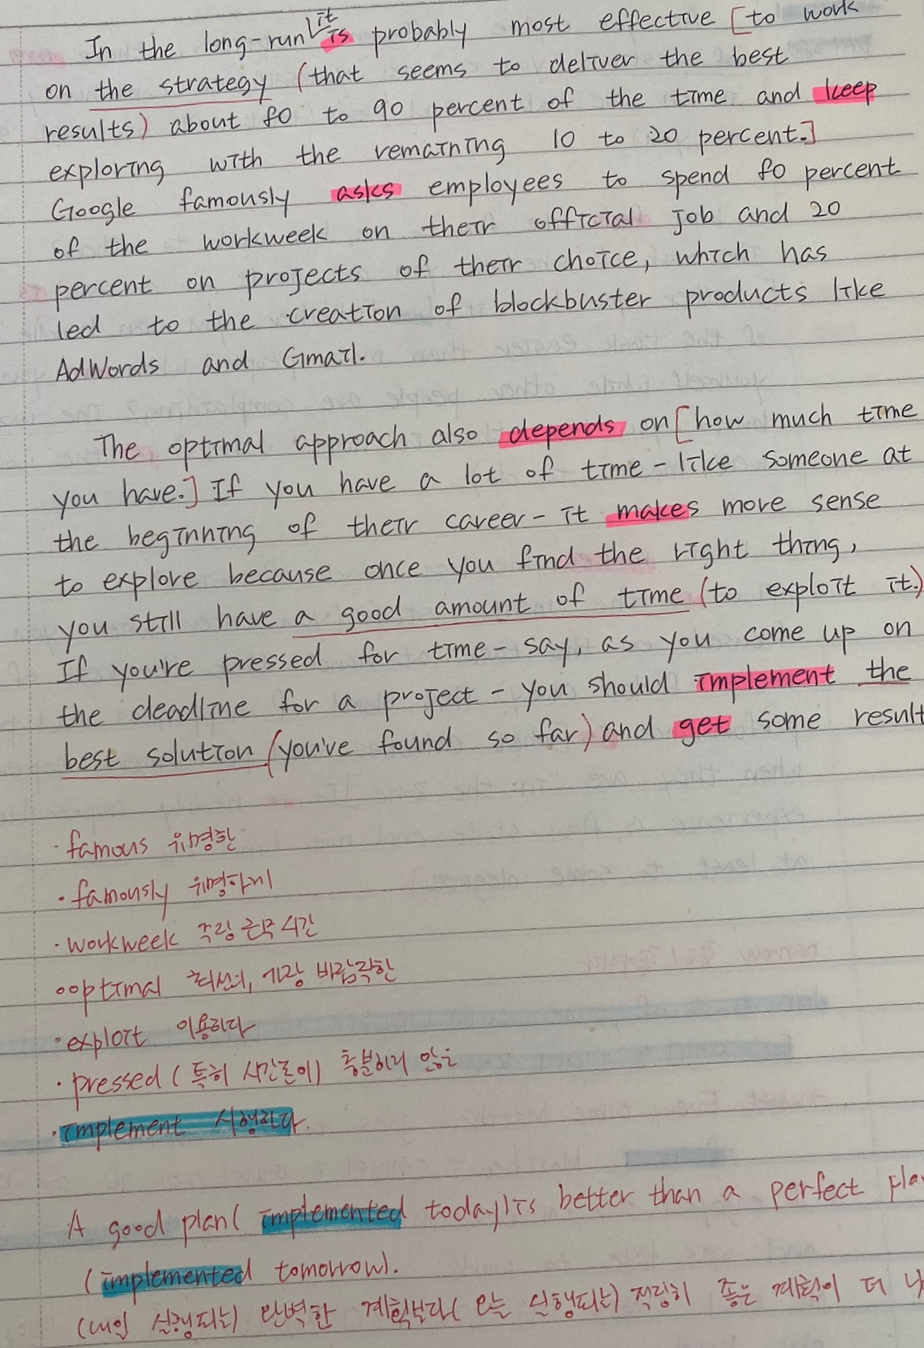 In the long-run it is probably most effective [to work
on the strategy (that seems to deliver the best
results) about 80 to 90 percent of the time and keep
exploring with the remaining 10 to 20 percent.]
Google famously asks employees to spend 80 percent
of the workweek on their official job and 20
percent on projects of their choice, which has
led to the creation of blockbuster products like
AdWords and Gmail.
The optimal approach also depends on [how much time
you have.] If you have a lot of time - like someone at
the beginning of their career - it makes more sense
to explore because once you find the right thing,
you still have a good amount of time (to exploit it.)
If you're pressed for time - say, as you come up on
the deadline for a project - you should implement the
best solution (you've found so far) and get some result
· famous 유명한
· famously 유명하게
· workweek 주당 근무 시간
· optimal 최선의, 가장 바람직한
· exploit 이용하다
· pressed ( 특히 시간 돈이) 충분하지 않은
· implement 시행하다.
A good plan ( implemented today) is better than a perfect
( implemented tomorrow).
(내일 실행되는) 완벽한 계획보다 (오늘 실행되는) 적당히 좋은 계획이 더